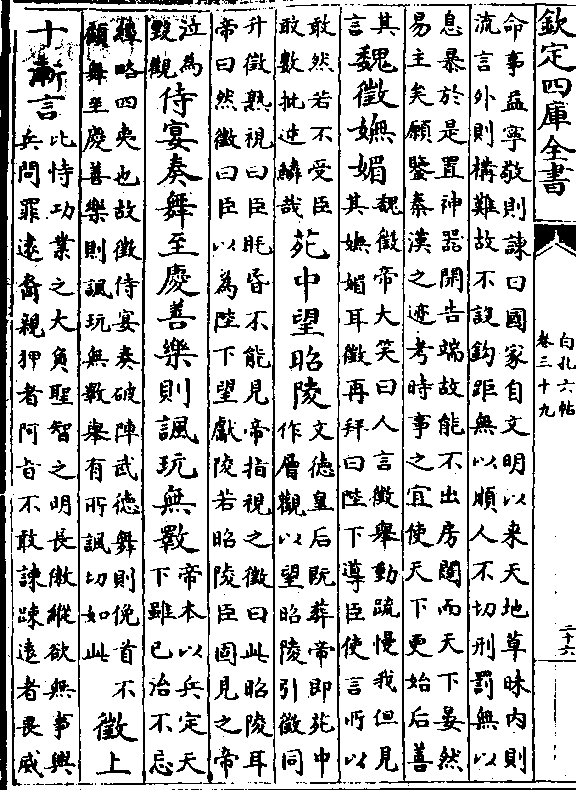 欽定四庫全書
白孔六帖
卷三十九
二十六
命事益寧敬則諫曰國家自文明以来天地草昧内則
流言外則構難故不設鈎距無以順人不切刑罰無以
息暴於是置神器開告端故能不出房闥而天下晏然
易主矣願鑒秦漢之迹考時事之宜使天下更始后善
其
言
魏徵嫵媚
魏徵帝大笑曰人言徵舉動疏慢我但見
其嫵媚耳徵再拜曰陛下導臣使言所以
敢然若不受臣
敢數批逆鱗哉
苑中望昭陵
文德皇后既葬帝即苑中
作層觀以望昭陵引徵同
升徵熟視曰臣眊昏不能見帝指視之徵曰此昭陵耳
帝曰然徵曰臣以為陛下望獻陵若昭陵臣固見之帝
泣為
毀觀
侍宴奏舞至慶善樂則諷玩無斁
帝本以兵定天
下雖已治不忘
經略四夷也故徵侍宴奏破陣武德舞則俛首不
顧舞至慶善樂則諷玩無數舉有所諷切如此
徵上
十漸言
比恃功業之大負聖智之明長傲縱欲無事興
兵問罪遠裔親狎者阿旨不敢諫踈遠者畏威